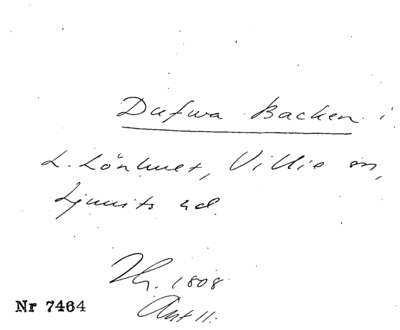 Dufwa Backen i
L. Lönhult, Villie sn,
Ljunits hd.
1808
Ant 11:
Nr 7464